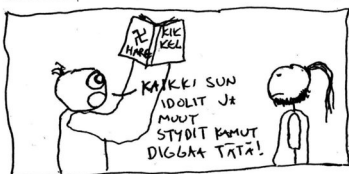 HARE
KIK
KEL
KAIKKI SUN
IDOLIT JA
MUUT
STYDIT KAMUT
DIGGAA TÄTÄ!